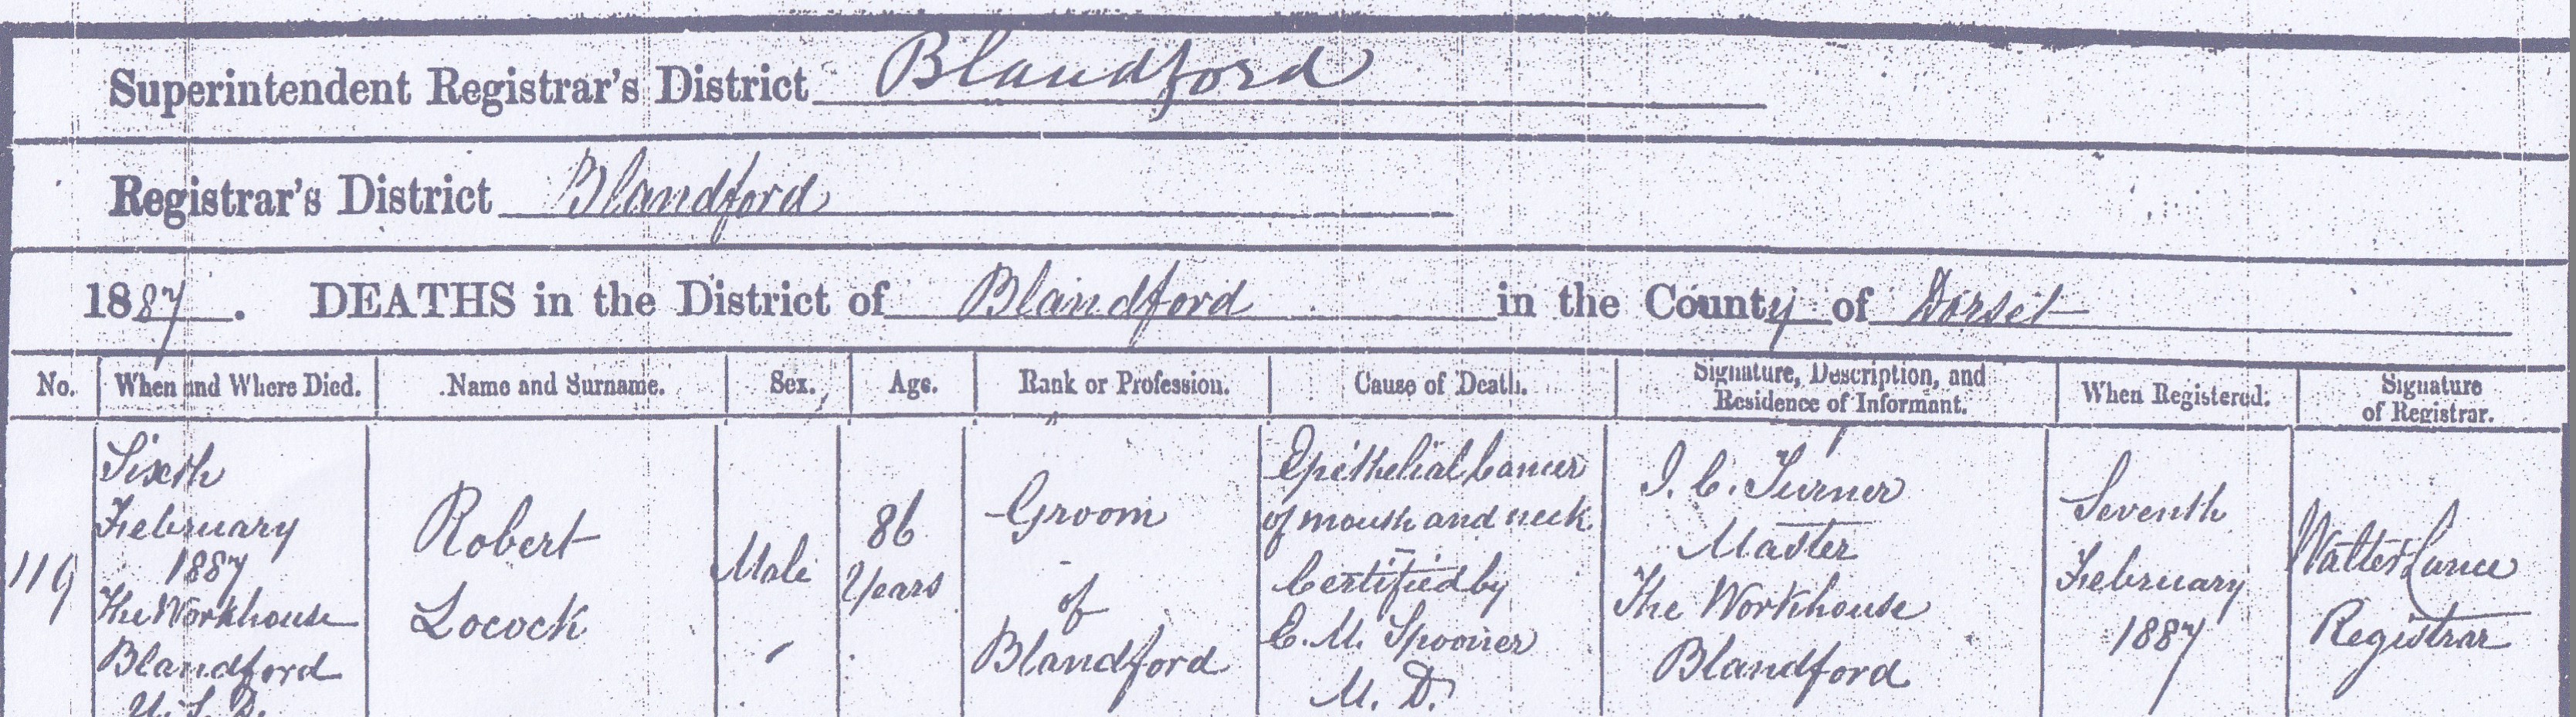 Superintendent Registrar's District Blandford
Registrar's District Blandford
1887. DEATHS in the District of Blandford in the County of Dorset
No. When and Where Died. Name and Surname. Sex. Age. Rank or Profession. Cause of Death. Signature, Description, and Residence of Informant. When Registered. Signature of Registrar.
119
Sixth
February
1887
The Workhouse
Blandford
Robert
Locock
Male
86
Years
Groom
of
Blandford
Epithelial Cancer
of mouth and neck
Certified by
E. M. Spooner
M. D.
I. C. Turner
Master
The Workhouse
Blandford
Seventh
February
1887
Walter
Registrar